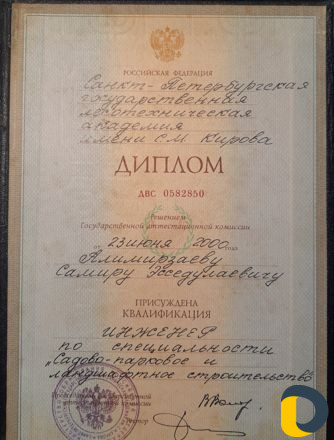 РОССИЙСКАЯ ФЕДЕРАЦИЯ
Санкт-Петербургская
государственная
лесотехническая
академия
имени С.М. Кирова
ДИПЛОМ
ДВС 0582850
Решением
Государственной аттестационной комиссии
от 23 июня 2000 года
Алимирзаеву
Самиру
ПРИСУЖДЕНА
КВАЛИФИКАЦИЯ
ИНЖЕНЕР
по специальности
„Садово-парковое и
ландшафтное строительство"
Председатель Государственной
аттестационной комиссии
Ректор